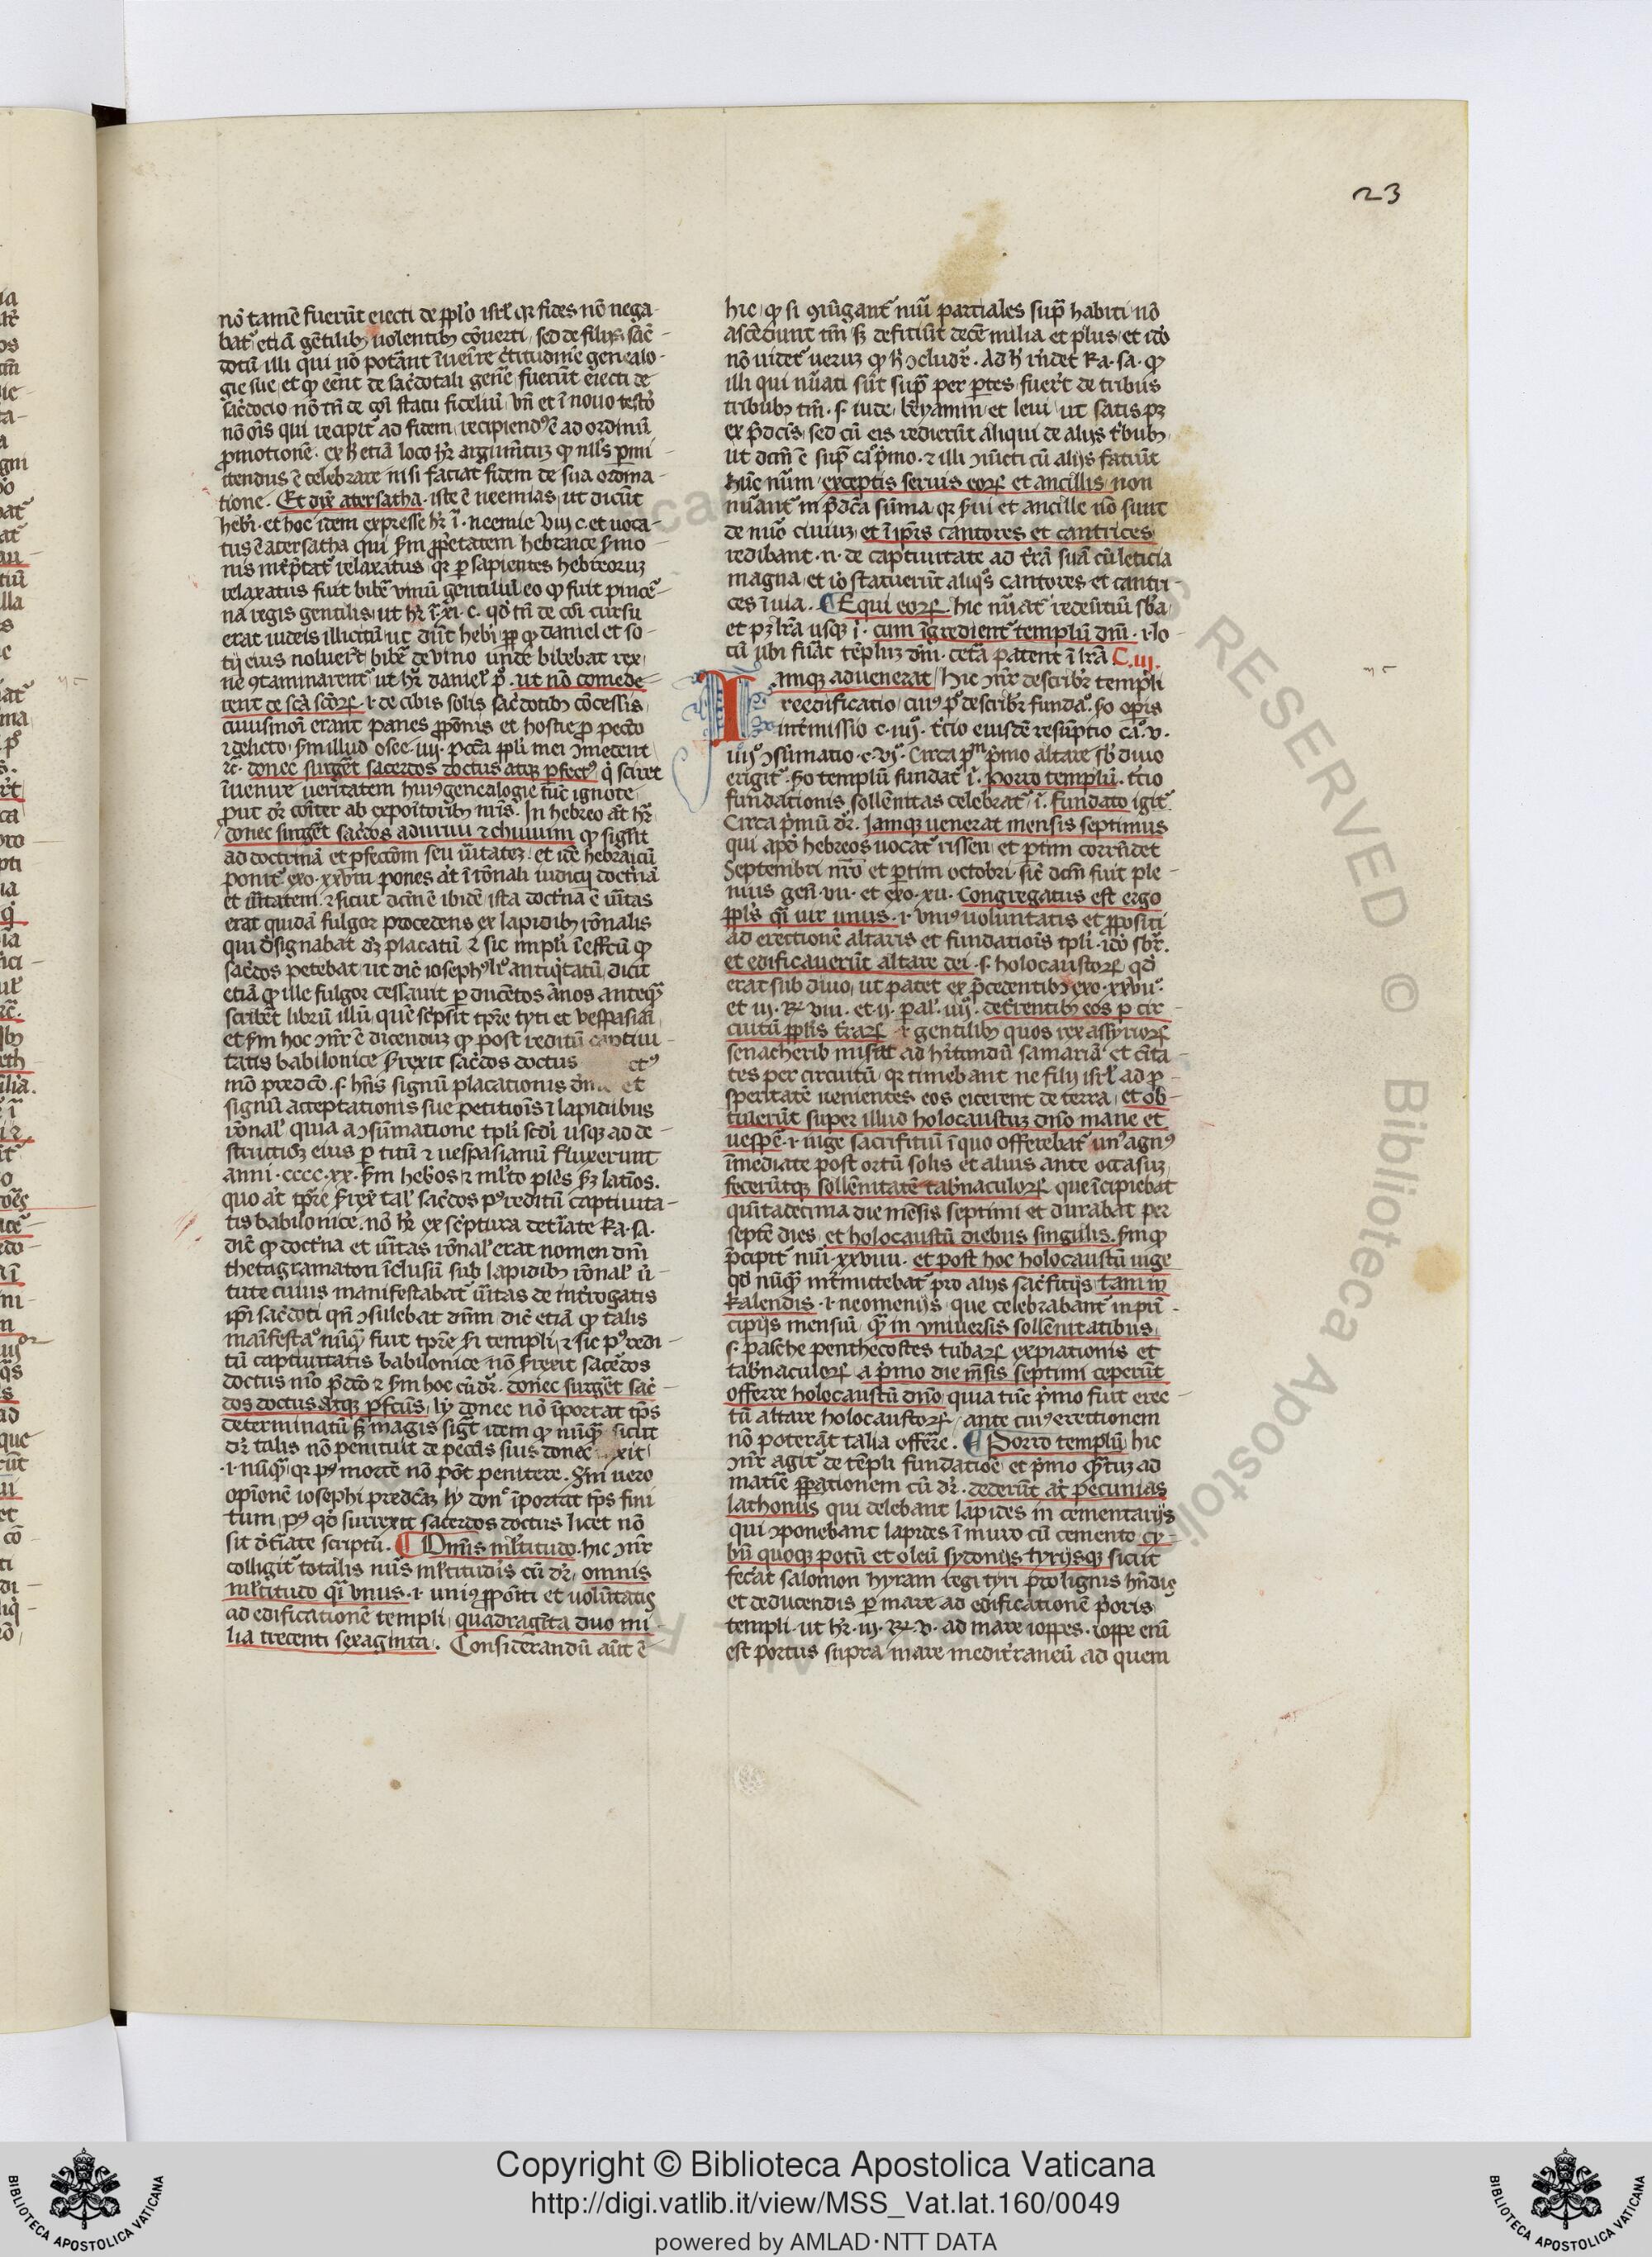 23
nō tamē fuerūt eiecti de pplō isrl' qr fides nō nega-
bat' etiā gētilib; uolentib; cōuerti, sed de filijs sac̄-
dotū illi qui nō potāt īuēire c̄titudinē genealo-
gie sue, et qp eēnt de sac̄dotali gen̄e, fuerūt eiecti de
sac̄docio nō tn̄ de cōi statu fideliū. Vn̄ et ī nouo testō
nō oīs qui recipit' ad fidem, recipiend' ē ad ordinū
p̄motionē. ex h̄ etiā loco hr̄ argumētuz qp null's pmi-
ttendus ē celebrare nisi faciat fidem de sua ordina-
tione. Et dix̄ atersatha. iste ē neemias, ut dicūt
hebr̄. et hoc idem expresse hr̄ ī. neemie viij c. et uoca-
tus ē atersatha qui s̄m pp̄etatem hebraice s̄mo-
nis int̄p̄tat' relaxatus, qr p sapientes hebreoruz
relaxatus fuit bibē vinū gentiliū, eo qp fuit pincē-
na regis gentilis, ut hr̄ ī. xi. c. qd' tn̄ de cōi cursu
erat iudeis illicitū, ut dn̄t hebr̄ pp qp daniel et so-
cij eius noluer̄t bibē de vino unde bibebat rex,
ne ꝯtaminarent' ut hr̄ daniel' p̄. ut nō comede-
rent de sc̄a sc̄orꝝ. i. de cibis solis sac̄dotib; cōcessis,
cuiusmōi erant panes ppōnis et hostie p pecc̄o
⁊ delicto, s̄m illud osee. iiij. pc̄c̄a ppl'i mei ꝯmedent
⁊c̄. donec surget sacerdos doctus atq; pfect', q' sciret
īuenire ueritatem hui' genealogie tūc ignote,
put dr̄ cōiter ab expoitorib; nr̄is. In hebreo at̄ hr̄
donec surget sac̄dos ad urim ⁊ thumim qp sigt̄
ad doctrinā et pfectōm seu ūitatez. et idē hebraicū
ponit' exo. xxviij pones at̄ ī rōnali iudicij doct'nā
et ūitatem. ⁊ sicut dcm̄ ē ibidē ista doct'na ē ūitas
erat quidā fulgor procedens ex lapidib; rōnalis
qui dsignabat deū placatū ⁊ sic impl'i ī effc̄tū qp
sac̄dos petebat, ut dic̄ ioseph' li' antiq'tatū, dicit
etiā qp ille fulgor cessauit p ducētos ānos anteq̄
scribēt librū illū quē sc̄psit tpr̄e tyti et uespasiāi
et s̄m hoc ꝯn̄r ē dicenduz qp post reditū captiui-
tatis babilonice s̄rexit sac̄dos doctus et'
mō predcō. s. hn̄s signū placationis et
signū acceptationis sue petitiōis ī lapidibus
rōnal' quia a ꝯsūmatione tpl'i sc̄di usq; ad de-
structioz eius p titū ⁊ uespasianū fluxerunt
anni. cccc. xx. s̄m hebr̄os ⁊ ml'to pl's s̄z latīos.
quo at̄ tpr̄e s̄rex̄ tal' sac̄dos p' reditū captiuita-
tis babilonice. nō hr̄ ex sc̄ptura det'iate. Ra. sa.
dic̄ qp doct'na et ūitas rōnal' erat nomen dn̄i
thetagramaton īclusū sub lapidib; rōnal' ū-
tute cuius manifestabat' ūitas de int'rogatis
ip̄i sac̄doti qn̄ ꝯsulebat dn̄m, dic̄ etiā qp talis
maīfestac̄o nūq̄ fuit tpr̄e s̄i templi, ⁊ sic p' redi-
tū captiuitatis babilonice nō s̄rexit sac̄dos
doctus mō p̄dcō ⁊ s̄m hoc cū dr̄. donec surget sac̄-
dos doctus atq; pfcūs, ly donec nō īportat tp̄s
determinatū s; magis sigt̄ idem qp nūq̄, sicut
dr̄ talis nō penituit de pecc̄is suis donec
i. nūq̄, qr p' mortē nō pōt penitere. s̄m uero
opīonē iosephi predcāz ly don̄ īportat tp̄s fini-
tum, p' qd' surrexit sacerdos doctus licet nō
sit d't'iate scriptū. Omīs ml'titudo. hic ꝯn̄r
colligit' totalis nūs ml'titudīs cū dr̄, omnis
ml'titudo q̄i vnus. i. unius ppōiti et uolūtatis
ad edificationē templi, quadragīta duo mi-
lia trecenti sexaginta. Considerandū aūt ē
hic, qp si ꝯiūgant' nūi partiales sup̄ habiti nō
ascēdunt tm̄ s; deficiūt decē milia et plus, et idō
nō uidet' ueruz qp h' ꝯcludr̄. Ad h' rn̄det Ra. sa. qp
illi qui nūati sūt sup̄ per ptes fuer̄t de tribus
tribub; tm̄. s. iude, beniamin, et leui, ut satis p;
ex p̄dcīs, sed cū eis redierūt aliqui de alijs t'bub;
ut dcm̄ ē sup̄ ca. p̄mo. ⁊ illi ꝯiūcti cū alijs faciūt
hūc nūm, exceptis seruis eorꝝ et ancillis, non
nūant' in p̄dc̄a sūma, qr s̄ui et ancille nō sunt
de nūo ciuiuz, et ī ip̄is cantores et cantrices,
redibant. n. de captiuitate ad t'rā suā cū leticia
magna, et iō statuerūt aliq's cantores et cantri-
ces ī uia. Equi eorꝝ. hic nūat' iedēntiū sb̄a
et p; lr̄a usq; ī. cum īgredient' templū dn̄i. i. lo-
cū ubi fūat tēpluz dn̄i. cetā patent ī lr̄a C. iij.
Iamq; aduenerat, hic ꝯn̄r describr̄ templi
reedificatio, cui' p' describr̄ fundac̄o. s̄o opis
int'missio c. iiij. t'cio eiusdē resūptio ca'. v.
iiij' ꝯsūmatio. c. vj'. Circa p'm p̄mo altare sb' diuo
erigit'. s̄o templū fundat' ī. porro templū. t'cio
fundationis sollēnitas celebrat', ī. fundato igit'
Circa p̄mū dr̄. Iamq; uenerat mensis septimus
qui apd' hebreos uocat' tissēn, et ptim corrn̄det
septembri nrō et ptim octobri, sic̄ dcm̄ fuit ple-
nius gen̄. vij. et exo. xij. Congregatus est ergo
ppl's q̄i uir unus. i. vni' uoluntatis et ppositi
ad erectionē altaris et fundatiōis tpl'i. idō sbr̄.
et edificauerūt altare dei. s. holocaustorꝝ, qd'
erat sub diuo, ut patet ex p̄cedentib; exo. xxvij'.
et iij. R'. viij. et ij. pal'. iiij'. det'rentib; eos p cir-
cuitū pplīs t'rarꝝ i. gentilib; quos rex assyriorꝝ
senacherib misat ad hītandū samariā et ciuita-
tes per circuitū, qr timebant ne filij isrl' ad p-
speritatē uenientes eos eicerent de terra, et ob-
tulerūt super illud holocaustuz dn̄o mane et
uespē. i. iuge sacrifitiū ī quo offerebat' un' agn'
īmediate post ortū solis et alius ante occasuz,
fecerūtq; sollēnitatē tab'naculorꝝ que īcipiebat
quītadecima die mēsis septimi et durabat per
septē dies, et holocaustū diebus singulis. s̄m qp
p̄cipit' nūi. xxviij. et post hoc holocaustū iuge
qd' nūq̄ int'mittebat' pro alijs sac'fitijs, tam in
kalendis. i. neomenijs, que celebrabant' in pri-
cipijs mensiū, q̄ in vniuersis sollēnitatibus,
s. pasche penthecostes tubarꝝ expiationis et
tab'naculorꝝ a p̄mo die mēsis septimi ceperūt
offerre holocaustū dn̄o, quia tūc p̄mo fuit erec-
tū altare holocaustorꝝ, ante cui' erectionem
nō poterāt talia offerre. Porro templū, hic
ꝯn̄r agit' de tēpli fundatiōē et p̄mo q̄tuz ad
matīe ppationem cū dr̄. dederūt at̄ pecunias
lathomis qui dolebant lapides in cementarijs
qui ꝯponebant lapides ī muro cū cemento, cy-
bū quoq; potū et oleū sydonijs tyrijsq; sicut
fec̄at salomon hyram regi tyri pro lignis hn̄dis
et deducendis p mare ad edificationē prioris
templi. ut hr̄. iij. R'. v. ad mare ioppes. ioppe enī
est portus supra mare medit'raneū ad quem
Copyright © Biblioteca Apostolica Vaticana
http://digi.vatlib.it/view/MSS_Vat.lat.160/0049
powered by AMLAD·NTT DATA
BIBLIOTECA APOSTOLICA VATICANA
BIBLIOTECA APOSTOLICA VATICANA